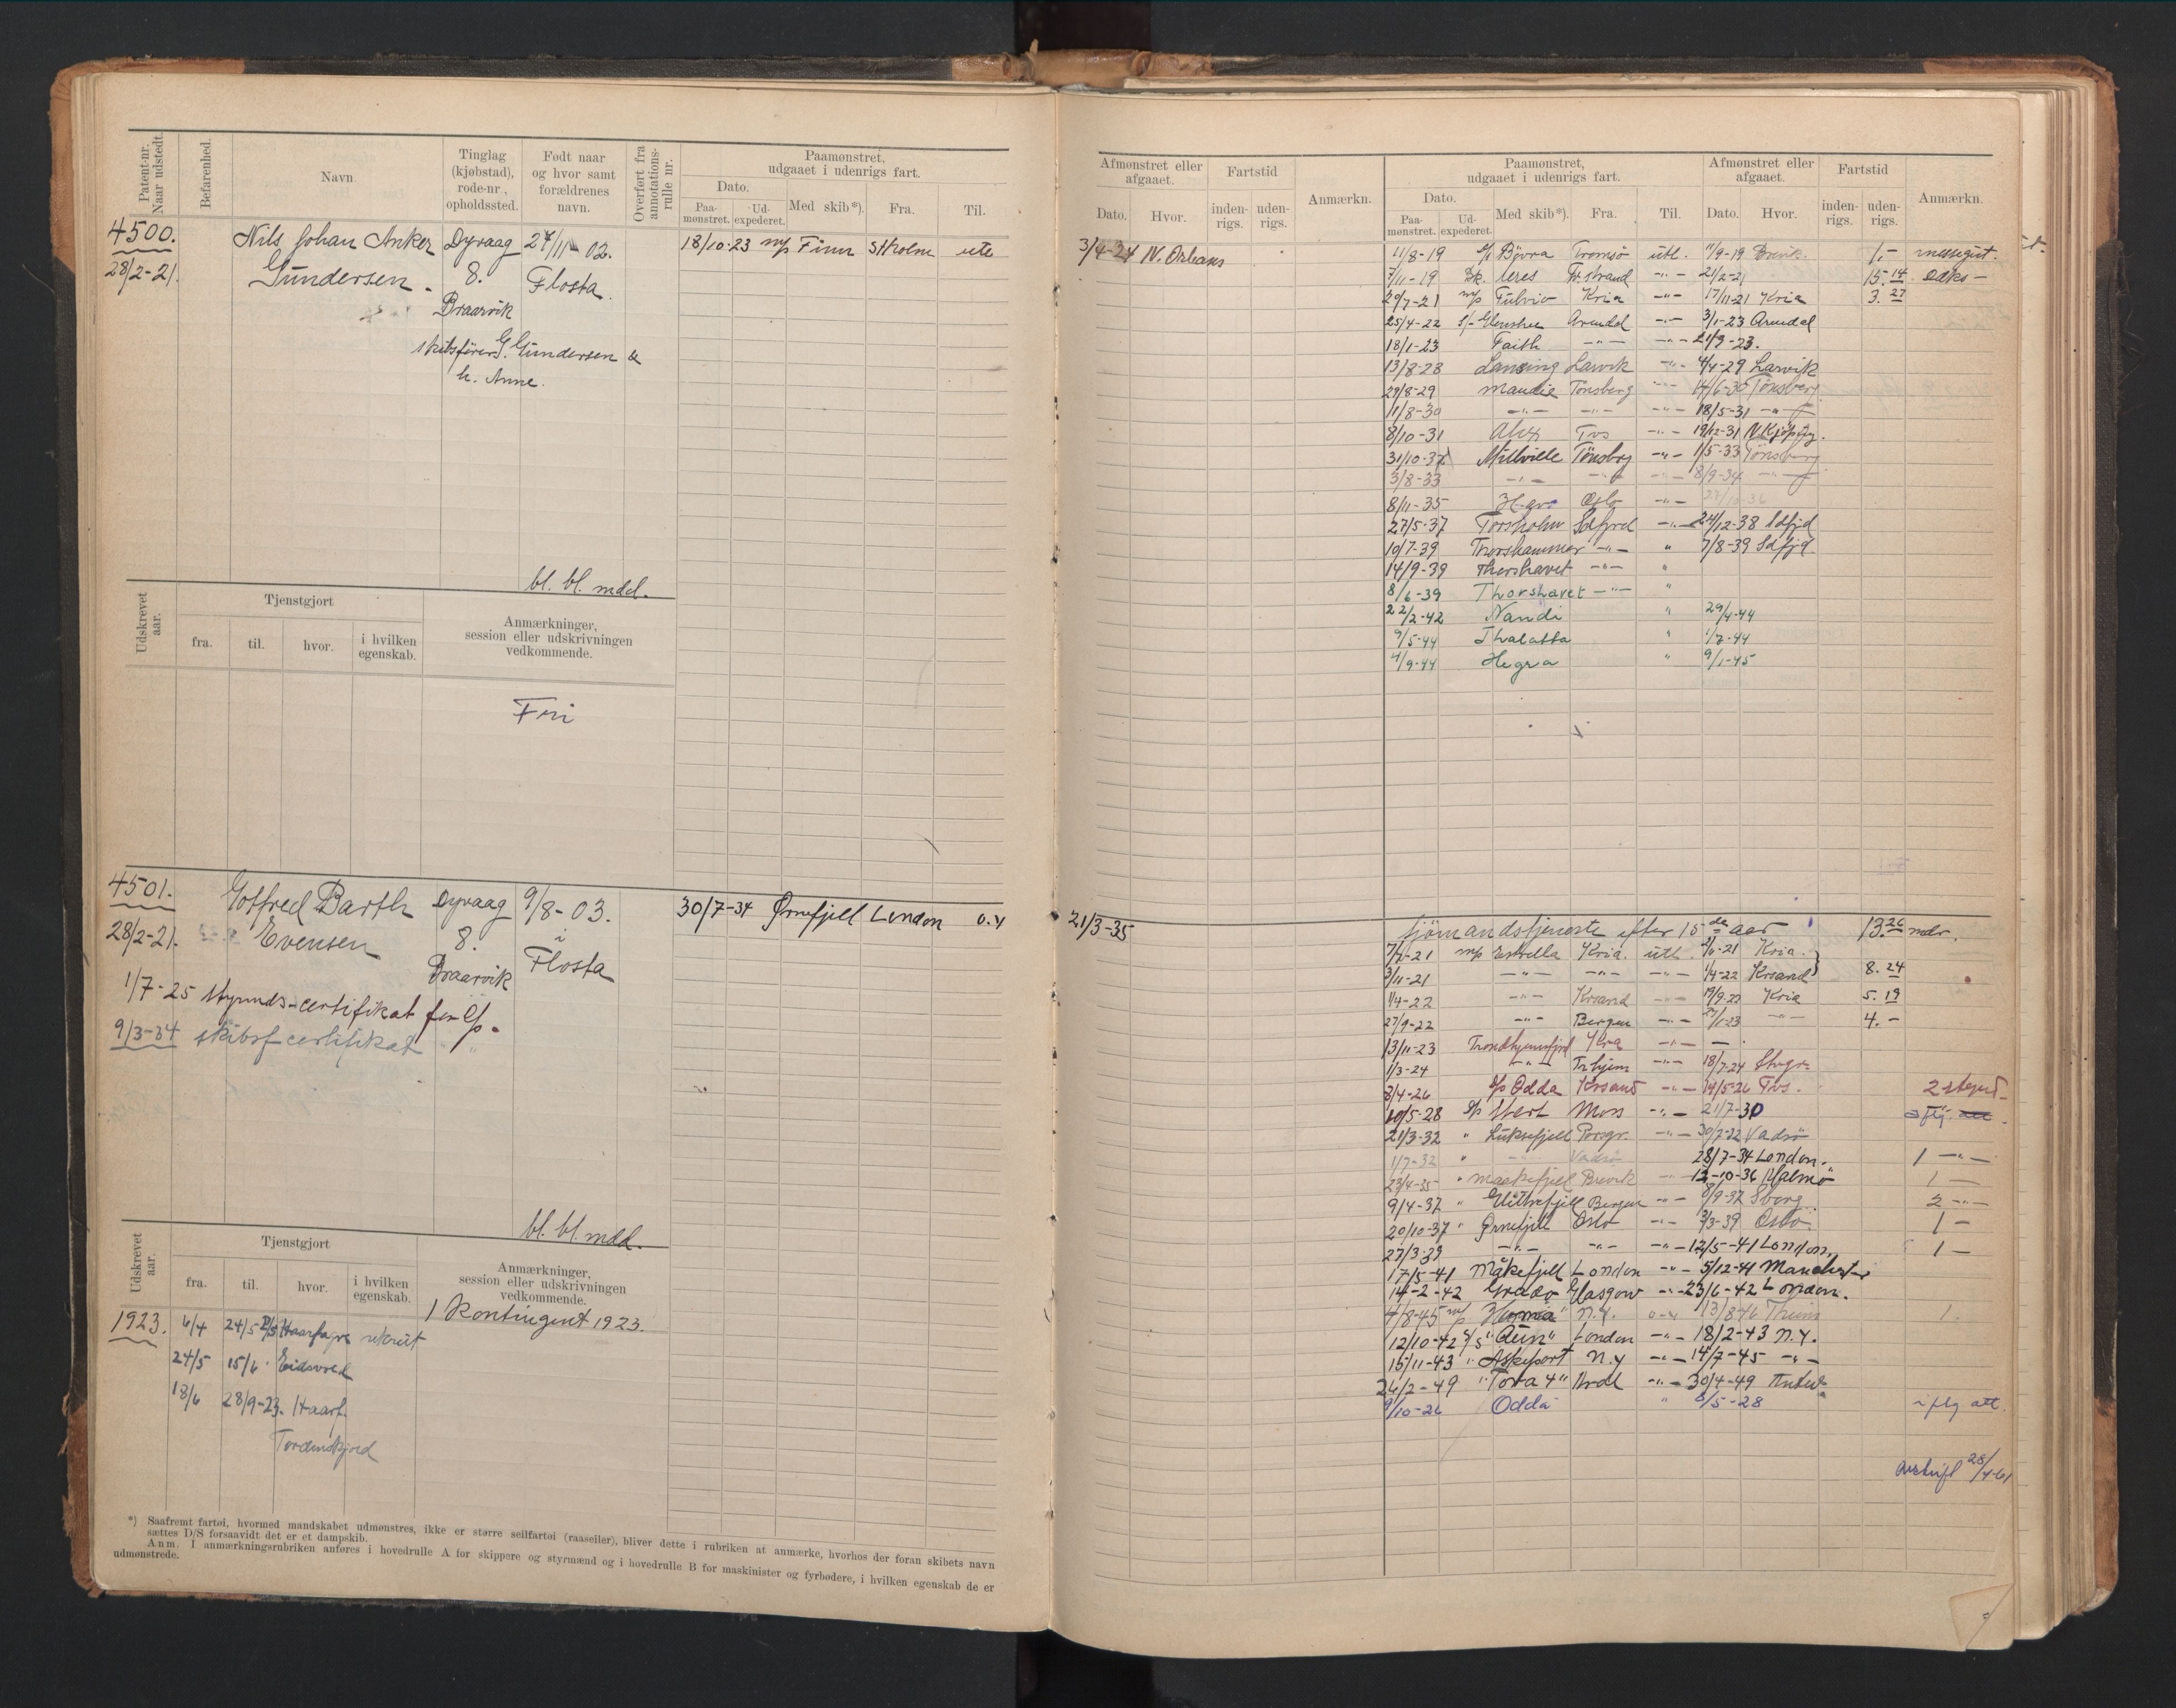 Patent-nr. Naar udstedt.
Befarenhed.
Navn
Tinglag (kjøbstad), rode-nr., opholdssted.
Født naar og hvor samt forældrenes navn.
Overført fra annotations-rulle nr.
Paamønstret, udgaaet i udenrigs fart.
Dato.
Paa-mønstret.
Ud-expederet.
Med skib*).
Fra.
Til.
4500.
28/2-21.
Nils Johan Anker
Gundersen.
Dyvaag
8.
Braarvik
02.
Flosta.
skibsfører G. Gundersen &
h. Anne.
18/10-23 m/s Finn Stholm ute
bl. bl. mdd.
Udskrevet aar.
Tjenstgjort
fra.
til.
hvor.
i hvilken egenskab.
Anmærkninger, session eller udskrivningen vedkommende.
Fri
4501.
28/2-21.
Gotfred Barth
Evensen
Dyvaag
8.
Braarvik
9/8-03.
i
Flosta
1/7-25 styrmds-certifikat
9/3-34 skibsf certifikat
30/7-34 Ørnefjell London
bl. bl. mdd.
Udskrevet aar.
Tjenstgjort
fra.
til.
hvor.
i hvilken egenskab.
Anmærkninger, session eller udskrivningen vedkommende.
1923.
6/4 24/5 rekrut
1 kontingent 1923.
24/5 15/6 Eidsvold
18/6 28/9-23. Haarf.
Tordenskjold
*) Saafremt fartøi, hvormed mandskabet udmønstres, ikke er større seilfartøi (raaseiler), bliver dette i rubriken at anmærke, hvorhos der foran skibets navn
sættes D/S forsaavidt det er et dampskib.
Anm. I anmærkningsrubriken anføres i hovedrulle A for skippere og styrmænd og i hovedrulle B for maskinister og fyrbødere, i hvilken egenskab de er
udmønstrede.
Afmønstret eller afgaaet.
Dato.
Hvor.
Fartstid
inden-rigs.
uden-rigs.
Anmærkn.
Paamønstret, udgaaet i udenrigs fart.
Dato.
Paa-mønstret.
Ud-expederet.
Med skib*).
Fra.
Til.
Afmønstret eller afgaaet.
Dato.
Hvor.
Fartstid
inden-rigs.
uden-rigs.
Anmærkn.
3/4-24 N. Orleans
11/8-19 Tromsø utl. 11/9-19 1.-
7/11-19 -"- 21/2-21 15.14
29/7-21 m/s Fulvio Kria -"- 17/11-21 Kria 3.27
25/4-22 Arendal -"- 3/1-23 Arendal
18/1-23 Faith -"- -"- 21/9-23.
13/8-28 Lansing Larvik -"- 4/4-29 Larvik
29/8-29 Maudie Tønsberg -"- 14/6-30 Tønsberg
11/8-30 -"- -"- -"- 18/5-31 -"-
8/10-31 Tvs -"- 19/12-31 N.Kjøping.
31/10-32 Melville Tønsbrg -"- 1/5-33 Tønsberg
3/8-33 -"- -"- -"- 8/9-34 -"-
8/11-35 Oslo -"-
27/5-37 Torsholm Sdfjord -"- 24/12-38 Sdfjd
10/7-39 Thorshammer -"- " 7/8-39 Sdfjd
14/9-39 Thorshavet -"- "
8/6-39 Thorshavet -"- "
22/2-42 Nandi " 29/4-44
9/5-44 Thalatta " 1/7-44
4/9-44 Hegra " 9/1-45
21/3-35
sjømandstjeneste efter 15de aar 13.26 mdr.
7/4-21 m/s Estrella Kria. utl. Kria.
3/11-21 -"- -"- -"- 1/4-22 Krsand 8.24
1/4-22 -"- Krsand -"- 19/9-22 Kria 5.19
27/9-22 -"- Bergen -"- 4.-
13/11-23 Trondhjemsfjord Kra -"- -
1/3-24 -"- Trhjem -"- 18/7-24
8/4-26 s/s Odda Krsand -"- 14/5-26 Tvs. 2 styrd
10/5-28 Moss -"- 21/7-30
21/3-32 " Luksefjell Porsgr. -"- 30/7-32 Vadsø
1/7-32 " -"- Vadsø 28/7-34 London. 1 -"-
23/4-35 " Maakefjell Brevik -"- 12-10-36 Malmø 1 -
9/4-37 " Bergen -"- 8/9-37 2 -"-
20/10-37 " Ørnefjell Oslo -"- 3/3-39 Oslo 1 -
27/3-39 -"- -"- -"- 12/5-41 London. 1 -
17/5-41 Måkefjell London -"- 5/12-41 Manchester
14-2-42 Grado Glasgow -"- 23/6-42 London.
4/8-45 m/s N.Y. 13/8-46 1.
12/10-42 s/s London -"- 18/2-43 N.Y.
15/11-43 " Askepot N.Y -"- 14/7-45 -"-
26/2-49 -"- 30/4-49
9/10-26 Odda " 8/5-28 att.
28/4-61